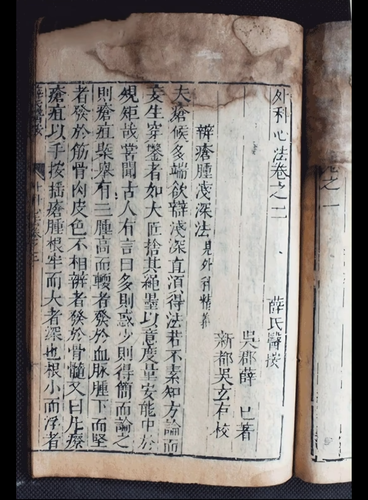 之一
外科心法卷之二 薛氏醫按
吳郡薛 已著
新都吳玄有校
辨瘡腫淺深法 見外科精義
夫瘡候多端欲辯淺深直須得法若不素知方論而
妄生穿鑿者如大匠捨其繩墨以意度量安能中於
規矩哉嘗聞古人有言曰多則惑少則得簡而論之
則瘡疽槩舉有三腫高而軟者發於血脉腫下而堅
者發於筋骨肉皮色不相辯者發於骨髓又曰凡療
瘡疽以手按搖瘡腫根牢而大者深也根小而浮者